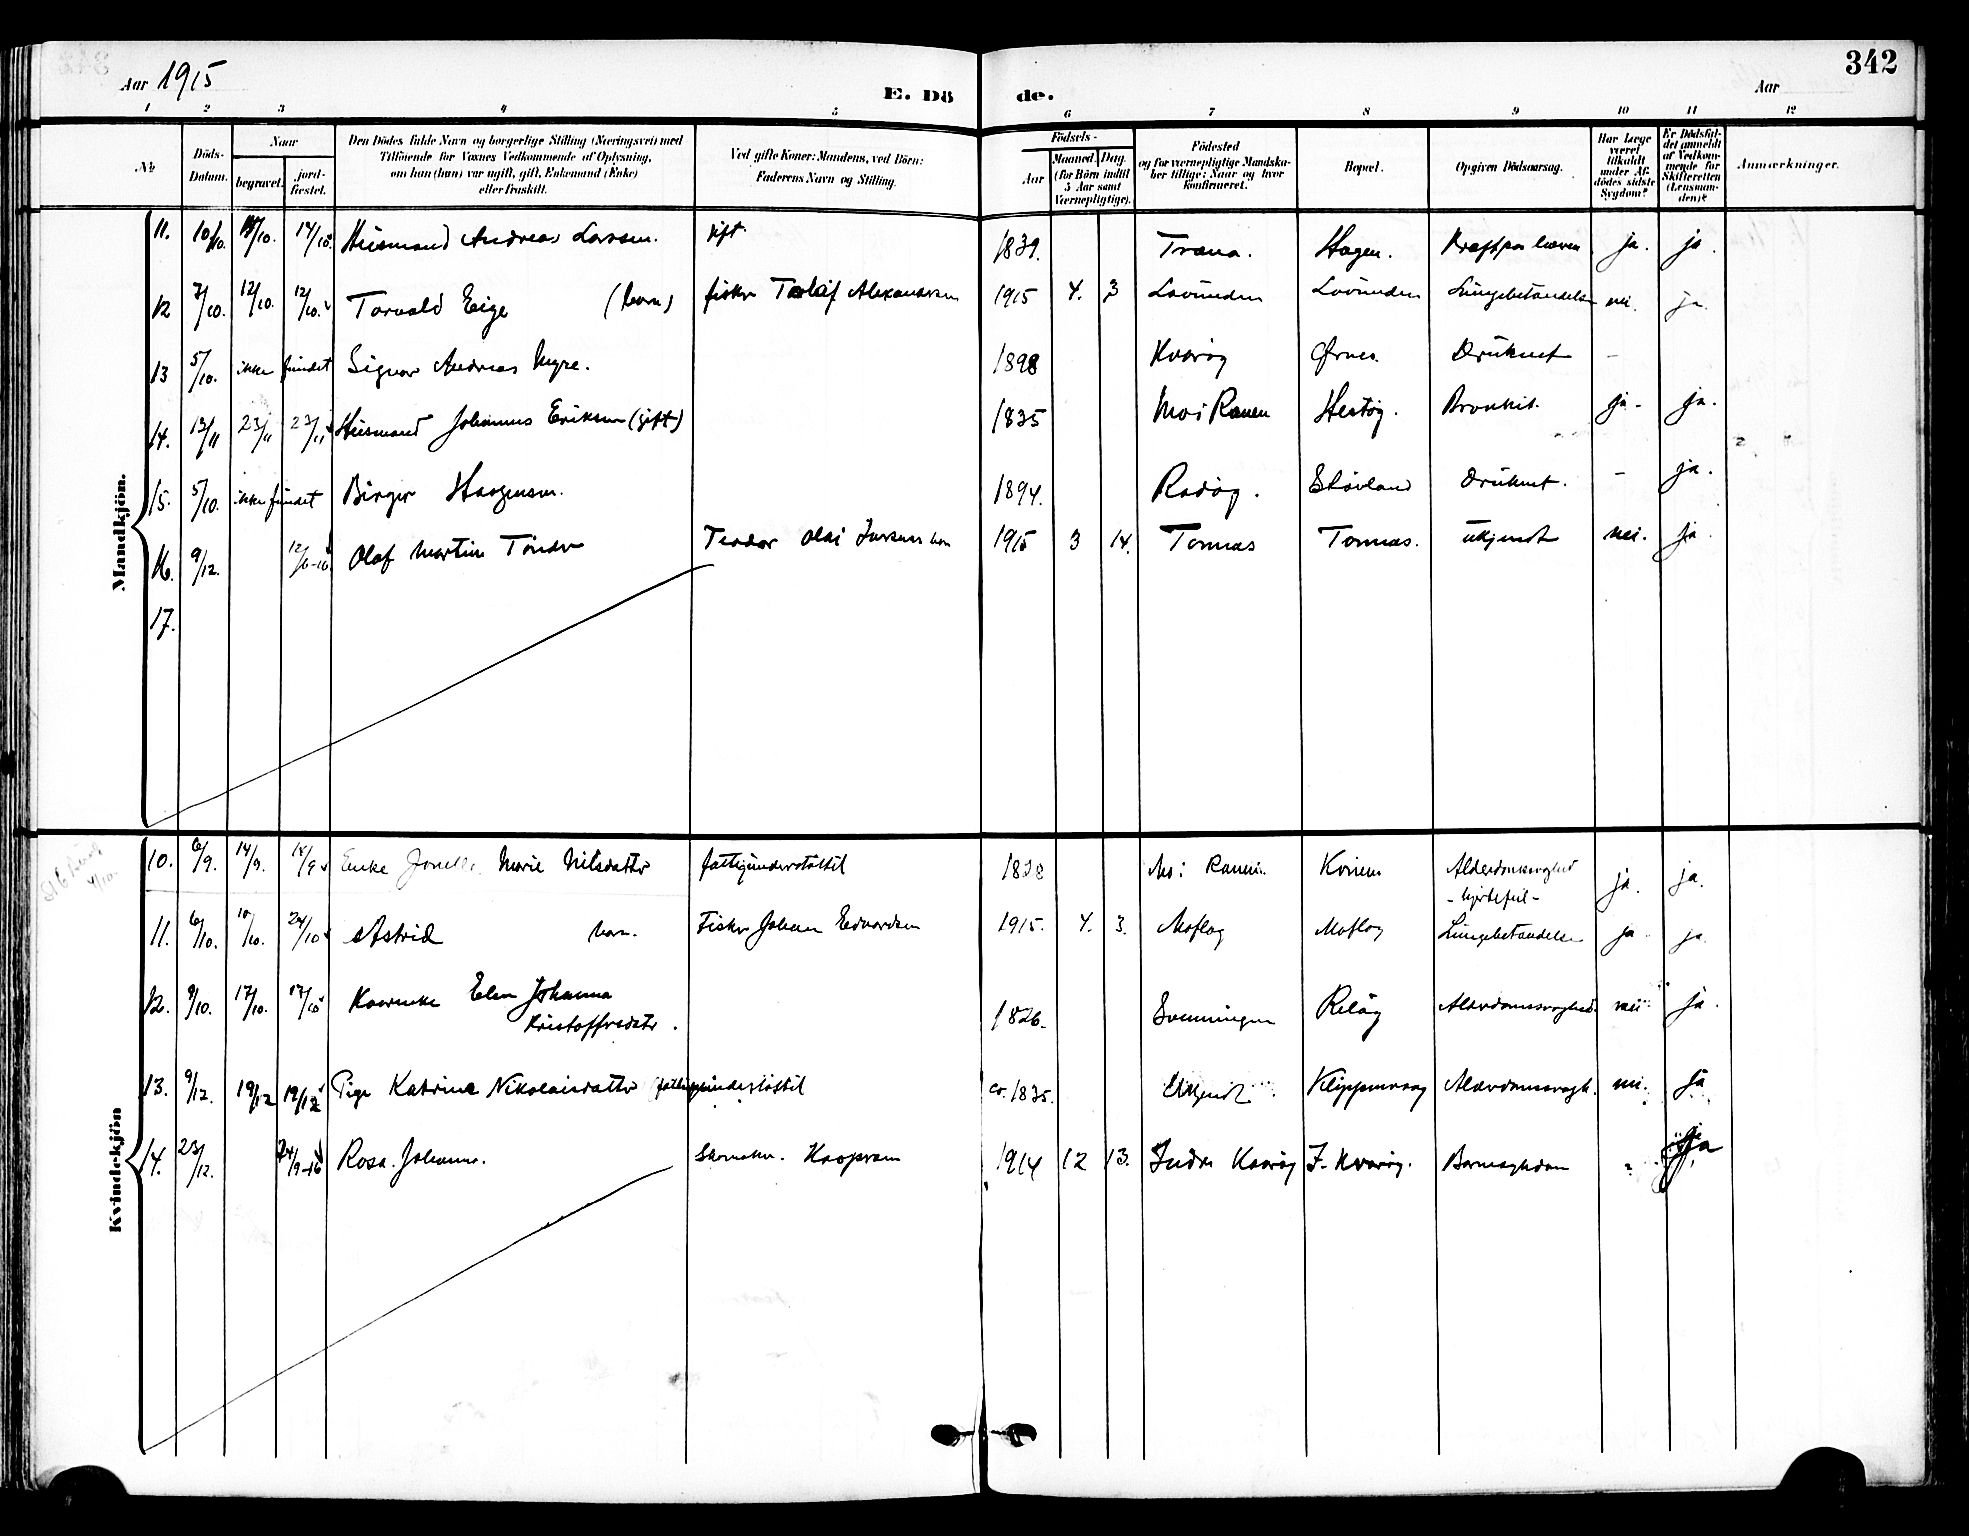 342
Aar 1915
E. Dö de.
Aar
1 2 3 4 5 6 7 8 9 10 11 12
No
Döds-Datum.
Naar
begravet.
jord-fæstet.
Den Dödes fulde Navn og borgerlige Stilling (Næringsvei) med
Tilföiende for Voxnes Vedkommende af Oplysning,
om han (hun) var ugift, gift, Enkemand (Enke)
eller fraskilt.
Ved gifte Koner: Mandens, ved Börn:
Faderens Navn og Stilling.
Födsels-
Aar
Maaned. Dag.
(for Börn indtil
5 Aar samt
Værnepligtige).
Födested
og for værnepligtige Mandska-
ber tillige: Naar og hvor
konfirmeret.
Bopæl.
Opgiven Dödsaarsag.
Har Læge
været
tilkaldt
under Af-
dödes sidste
Sygdom?
Er Dödsfal-
det anmeldt
af Vedkom-
mende for
Skifteretten
(Lensman-
den)?
Anmærkninger.
Mandkjön.
11. 10/10. /10. 17/10. Husmand Andreas Larssen. gift 1839. Træna. Hagen. Kræft paa leveren ja. ja.
12 7/10. 12/10. 12/10. Torvald Eige (barn) fisker Alexandersen 1915 4. 3 Lovunden Lovunden Lungebetændelse nei. ja.
13 5/10. ikke fundet Signor Andreas Myre. 1898 Kvarøy Ørnes. Druknet -
14. 13/11 23/11 23/11 Husmand Johannes Eriksen (gift) 1835 Mo i Ranen Hestøy. Bronkit. ja. ja.
15. 5/10. ikke fundet Birger Haagensen. 1894. Rødøy. Støvland Druknet. - ja.
16. 9/12. 12/6-16. Olaf Martin Tønder Teodor Olai 1915 3 14. Tonnes Tonnes. ukjendt nei. ja.
17.
Kvindekjön
10. 6/9. 14/9. 14/9 Enke Marie Nilsdatter fattigunderstøttet Mo i Ranen. Alderdomssvaghed
- hjertefeil - ja. ja.
11. 6/10. 10/10. 24/10 Astrid barn. Fisker Johan Edvardsen 1915. 4. 3. Moflag Moflag Lungebetændelse ja ja
12. 9/10. 17/10. 17/10 Elen Johanna
Kristoffersdatr. 1826. Svenningen Reløy Alderdomssvaghed. nei ja.
13. 9/12. 19/12 19/12 Pige Katrine Nikolaisdatter (fattigunderstøttet ca. 1835. Ukjendt Klippenvaag Alderdomssvagh. nei. Ja
14. 23/12. 24/9-16 Rosa Johanne. Skomaker Kaspersen 1914 12 13. Indre Kvarøy I. Kvarøy. Barnesykdom Ja